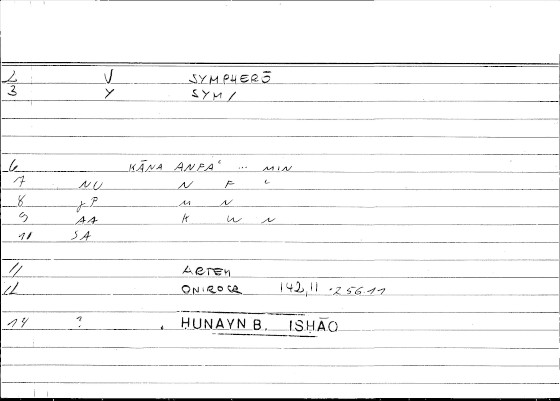 2 V SYMPHERŌ
3 Y SYM/
6 KĀNA ANFAʿ ... MIN
7 NU N F ʿ
8 gP M N
9 AA K W N
10 SA
11 ARTEM
12 ONIROCR 142,11 · 256.11
14 ? . HUNAYN B. ISḤĀQ